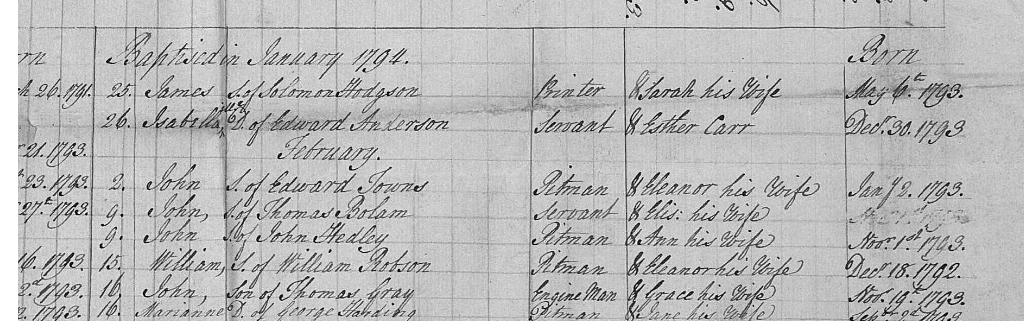 Baptised in January 1794. Born
26. 1791. 25. James S. of Solomon Hodgson Printer & Sarah his Wife May 6th 1793.
26. Isabella, illeg. D. of Edward Anderson Servant & Esther Carr Decr. 30. 1793
21. 1793. February.
23. 1793. 2. John S. of Edward Towns Pitman & Eleanor his Wife Jany 2. 1793.
27th. 1793. 9. John, S. of Thomas Bolam Servant & Elis: his Wife
9. John S. of John Hedley Pitman & Ann his Wife Novr. 1st 1793.
16. 1793. 15. William, S. of William Robson Pitman & Eleanor his Wife Decr. 18. 1792.
2d. 1793. 16. John, Son of Thomas Gray Engine Man & Grace his Wife Novr. 19th. 1793.
1793. 16. Marianne D. of George Harding Pitman & Jane his Wife Septr 2d 1793